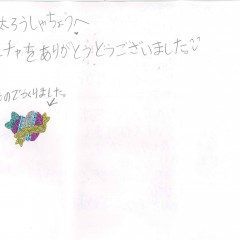 太ろうしゃちょうへ
チャをありがとうとうございました。
のでつくりました。